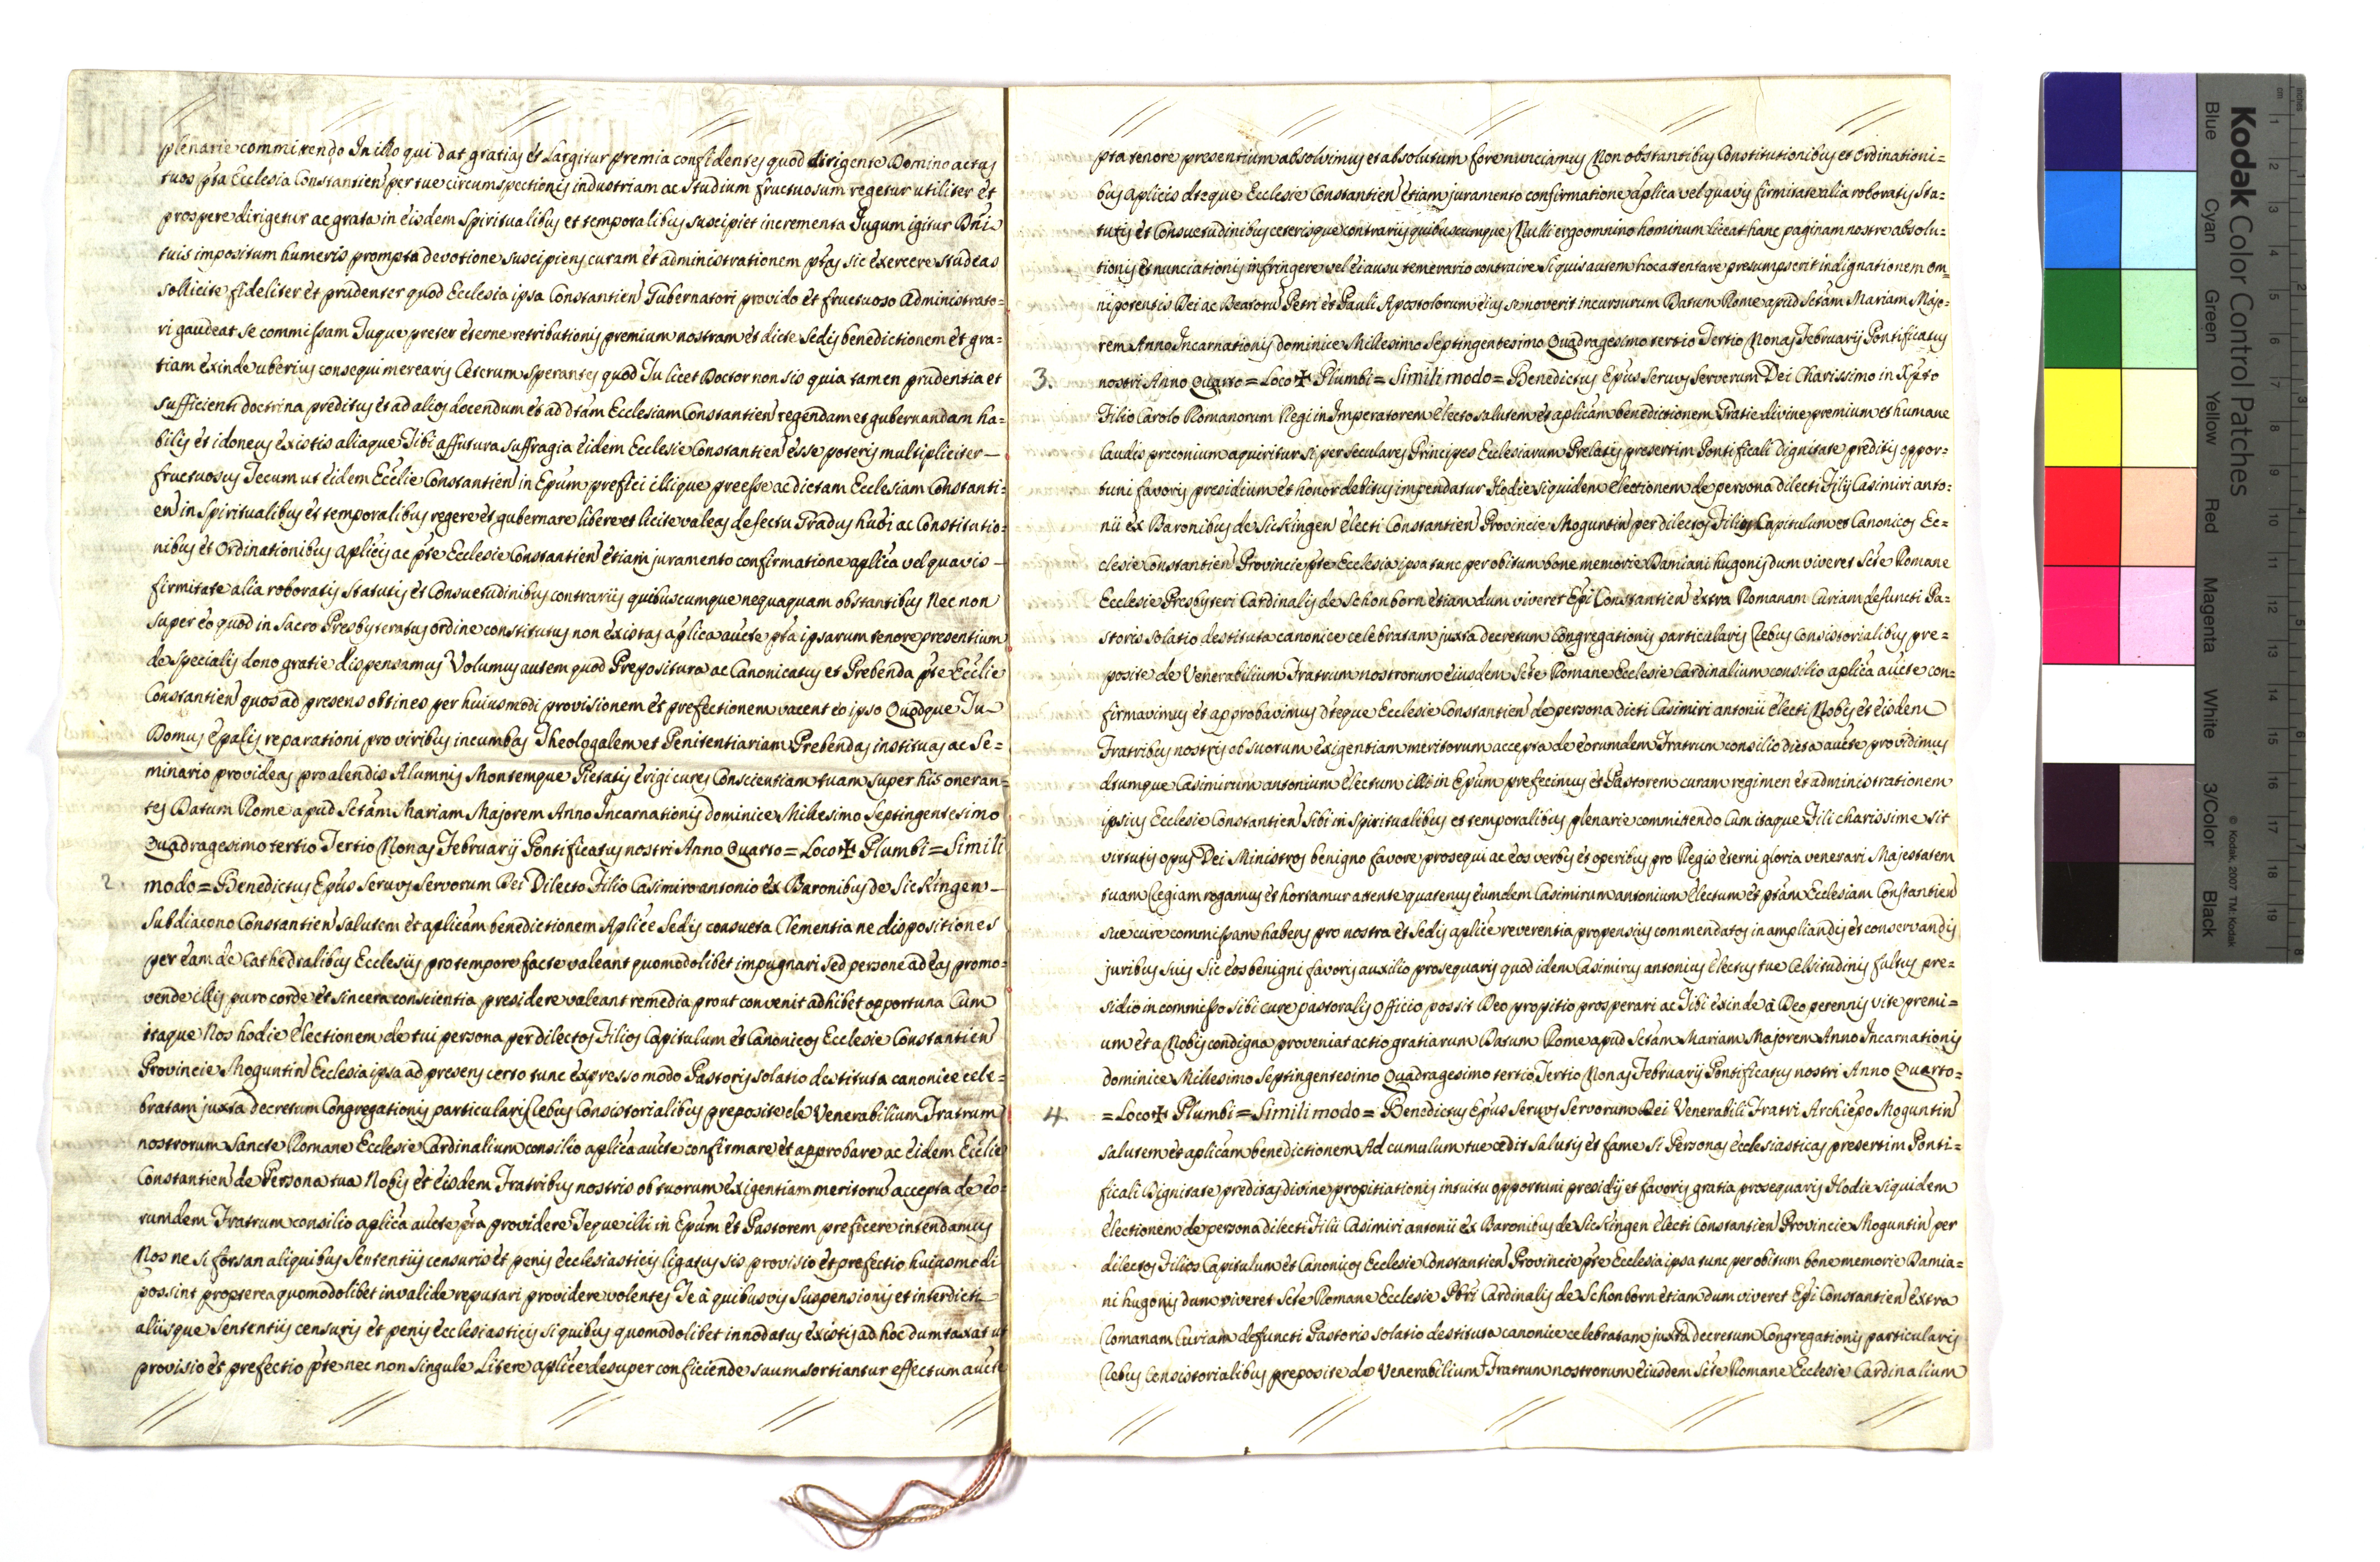 plenarie commitendo In illo qui dat gratias et Largitur premia confidentes quod dirigente Domino actus
tuos pta Ecclesia Constantien per tue circumspectionis industriam ac studium fructuosum regetur utiliter et
prospere dirigetur ac grata in eisdem Spiritualibus et temporalibus suscipiet incrementa Jugum igitur Dni
tuis impositum humeris prompta devotione suscipiens curam et administrationem ptas sic exercere studeas
sollicite fideliter et prudenter quod Ecclesia ipsa Constantien Gubernatori provido et fructuoso Administrato=
ri gaudeat se commissam Tuque preter eterne retributionis premium nostram et dicte Sedis benedictionem et gra=
tiam exinde uberius consequi merearis Ceterum sperantes quod Tu licet Doctor non sis quia tamen prudentia et
sufficienti doctrina preditus et ad alios docendum et ad dtam Ecclesiam Constantien regendam et gubernandam ha=
bilis et idoneus existis aliaque Tibi affutura suffragia eidem Ecclesie Constantien esse poteris multipliciter
fructuosus Tecum ut eidem Ecclie Constantien in Epum prefici illique preesse ac dictam Ecclesiam Constanti=
en in Spiritualibus et temporalibus regere et gubernare libere et licite valeas defectu Gradus hubi ac Constitutio=
nibus et Ordinationibus aplicis ac pte Ecclesie Constantien etiam juramento confirmatione aplica vel quavis
firmitate alia roboratis Statutis et Consuetudinibus contrariis quibuscumque nequaquam obstantibus Nec non
super eo quod in Sacro Presbyteratus ordine constitutus non existas aplica aucte pta ipsarum tenore presentium
de specialis dono gratie dispensamus Volumus autem quod Prepositura ac Canonicatus et Prebenda pte Ecclie
Constantien quos ad presens obtines per huiusmodi provisionem et prefectionem vacent eo ipso Quodque Tu
Domus epalis reparationi pro viribus incumbas Theologalem et Penitentiariam Prebendas instituas ac Se=
minario provideas pro alendis Alumnis Montemque Pietatis erigi cures Conscientiam tuam super his oneran=
tes Datum Rome apud Sctam Mariam Majorem Anno Incarnationis dominice Millesimo Septingentesimo
Quadragesimo tertio Tertio Nonas Februarij Pontificatus nostri Anno Quarto = Loco ✠ Plumbi = Simili
2. modo = Benedictus Epus Servus Servorum Dei Dilecto Filio Casimiro antonio ex Baronibus de Sickingen
Subdiacono Constantien salutem et aplicam benedictionem Aplice Sedis consueta Clementia ne dispositiones
per eam de Cathedralibus Ecclesiis pro tempore facte valeant quomodolibet impugnari sed persone ad eas promo=
vende illis puro corde et sincera conscientia presidere valeant remedia prout convenit adhibet opportuna Cum
itaque Nos hodie electionem de tui persona per dilectos Filios Capitulum et Canonicos Ecclesie Constantien
Provincie Moguntin Ecclesia ipsa ad presens certo tunc expresso modo Pastoris solatio destituta canonice cele=
bratam juxta decretum Congregationis particularis Rebus Consistorialibus preposite de Venerabilium Fratrum
nostrorum Sancte Romane Ecclesie Cardinalium consilio aplica aucte confirmare et approbare ac eidem Ecclie
Constantien de Persona tua Nobis et eisdem Fratribus nostris ob tuorum exigentiam meritoru accepta de eo=
rumdem Fratrum consilio aplica aucte pta providere Teque illi in Epum et Pastorem preficere intendamus
Nos ne si forsan aliquibus Sententiis censuris et penis ecclesiasticis ligatus sis provisio et prefectio huiusmodi
possint propterea quomodolibet invalide reputari providere volentes Te à quibusvis Suspensionis et interdicti
aliisque Sententiis censuris et penis ecclesiasticis si quibus quomodolibet innodatus existis ad hoc dumtaxat ut
provisio et prefectio pte nec non singule Litere aplice desuper conficiende suum sortiantur effectum aucte
pta tenore presentium absolvimus et absolutum fore nunciamus Non obstantibus Constitutionibus et Ordinationi=
bus aplicis dteque Ecclesie Constantien etiam juramento confirmatione aplica vel quavis firmitate alia roboratis Sta=
tutis et Consuetudinibus ceterisque contrariis quibuscumque Nulli ergo omnino hominum liceat hanc paginam nostre absolu=
tionis et nunciationis infringere vel ei ausu temerario contraire Si quis autem hoc attentare presumpserit indignationem om=
nipotentis Dei ac Beatoru Petri et Pauli Apostolorum eius se noverit incursurum Datum Rome apud Sctam Mariam Majo=
rem Anno Incarnationis dominice Millesimo Septingentesimo Quadragesimo tertio Tertio Nonas Februarij Pontificatus
3. nostri Anno Quarto = Loco ✠ Plumbi = Simili modo = Benedictus Epus Servus Servorum Dei Charissimo in Xpto
Filio Carolo Romanorum Regi in Imperatorem electo salutem et aplicam benedictionem Gratie divine premium et humane
laudis preconium aquiritur si per seculares Principes Ecclesiarum Prelatis presertim Pontificali dignitate preditis oppor=
tuni favoris presidium et honor debitus impendatur Hodie siquidem electionem de persona dilecti Filij Casimiri anto=
nii ex Baronibus de Sickingen electi Constantien Provincie Moguntin per dilectos Filios Capitulum et Canonicos Ec=
clesie Constantien Provincie pte Ecclesia ipsa tunc per obitum bone memorie Damiani hugonis dum viveret Scte Romane
Ecclesie Presbyteri Cardinalis de Schonborn etiam dum viveret Epi Constantien extra Romanam Curiam defuncti Pa=
storis solatio destituta canonice celebratam juxta decretum Congregationis particularis Rebus Consistorialibus pre=
posite de Venerabilium Fratrum nostrorum eiusdem Scte Romane Ecclesie Cardinalium consilio aplica aucte con=
firmavimus et approbavimus dteque Ecclesie Constantien de persona dicti Casimiri antonii electi Nobis et eisdem
Fratribus nostris ob suorum exigentiam meritorum accepta de eorumdem Fratrum consilio dicta aucte providimus
dtumque Casimirum antonium electum illi in Epum prefecimus et Pastorem curam regimen et administrationem
ipsius Ecclesie Constantien Sibi in Spiritualibus et temporalibus plenarie commitendo Cum itaque Fili charissime sit
virtutis opus Dei Ministros benigno favore prosequi ac eos verbis et operibus pro Regis eterni gloria venerari Majestatem
tuam Regiam rogamus et hortamur attente quatenus eumdem Casimirum antonium electum et ptam Ecclesiam Constantien
sue cure commissam habens pro nostra et Sedis aplice reverentia propensius commendatos in ampliandis et conservandis
juribus suis sic eos benigni favoris auxilio prosequaris quod idem Casimirus antonius electus tue Celsitudinis fultus pre=
sidio in commisso sibi cure pastoralis Officio possit Deo propitio prosperari ac Tibi exinde à Deo perennis vite premi=
um et a Nobis condigna proveniat actio gratiarum Datum Rome apud Sctam Mariam Majorem Anno Incarnationis
dominice Millesimo Septingentesimo Quadragesimo tertio Tertio Nonas Februarij Pontificatus nostri Anno Quarto=
4. = Loco ✠ Plumbi = Simili modo = Benedictus Epus Servus Servorum Dei Venerabili Fratri Archiepo Moguntin
salutem et aplicam benedictionem Ad cumulum tue cedit salutis et fame si Personas ecclesiasticas presertim Ponti=
ficali Dignitate preditas divine propitiationis intuitu opportuni presidij et favoris gratia prosequaris Hodie siquidem
electionem de persona dilecti Filii Casimiri antonii ex Baronibus de Sickingen electi Constantien Provincie Moguntin per
dilectos Filios Capitulum et Canonicos Ecclesie Constantien Provincie pte Ecclesia ipsa tunc per obitum bone memorie Damia=
ni hugonis dum viveret Scte Romane Ecclesie Pbri Cardinalis de Schonborn etiam dum viveret Epi Constantien extra
Romanam Curiam defuncti Pastoris solatio destituta canonice celebratam juxta decretum Congregationis particularis
Rebus Consistorialibus preposite de Venerabilium Fratrum nostrorum eiusdem Scte Romane Ecclesie Cardinalium
Kodak Color Control Patches
Blue Cyan Green Yellow Red Magenta White 3/Color Black
© Kodak, 2007 TM: Kodak
inches 1 2 3 4 5 6 7 8
cm 1 2 3 4 5 6 7 8 9 10 11 12 13 14 15 16 17 18 19